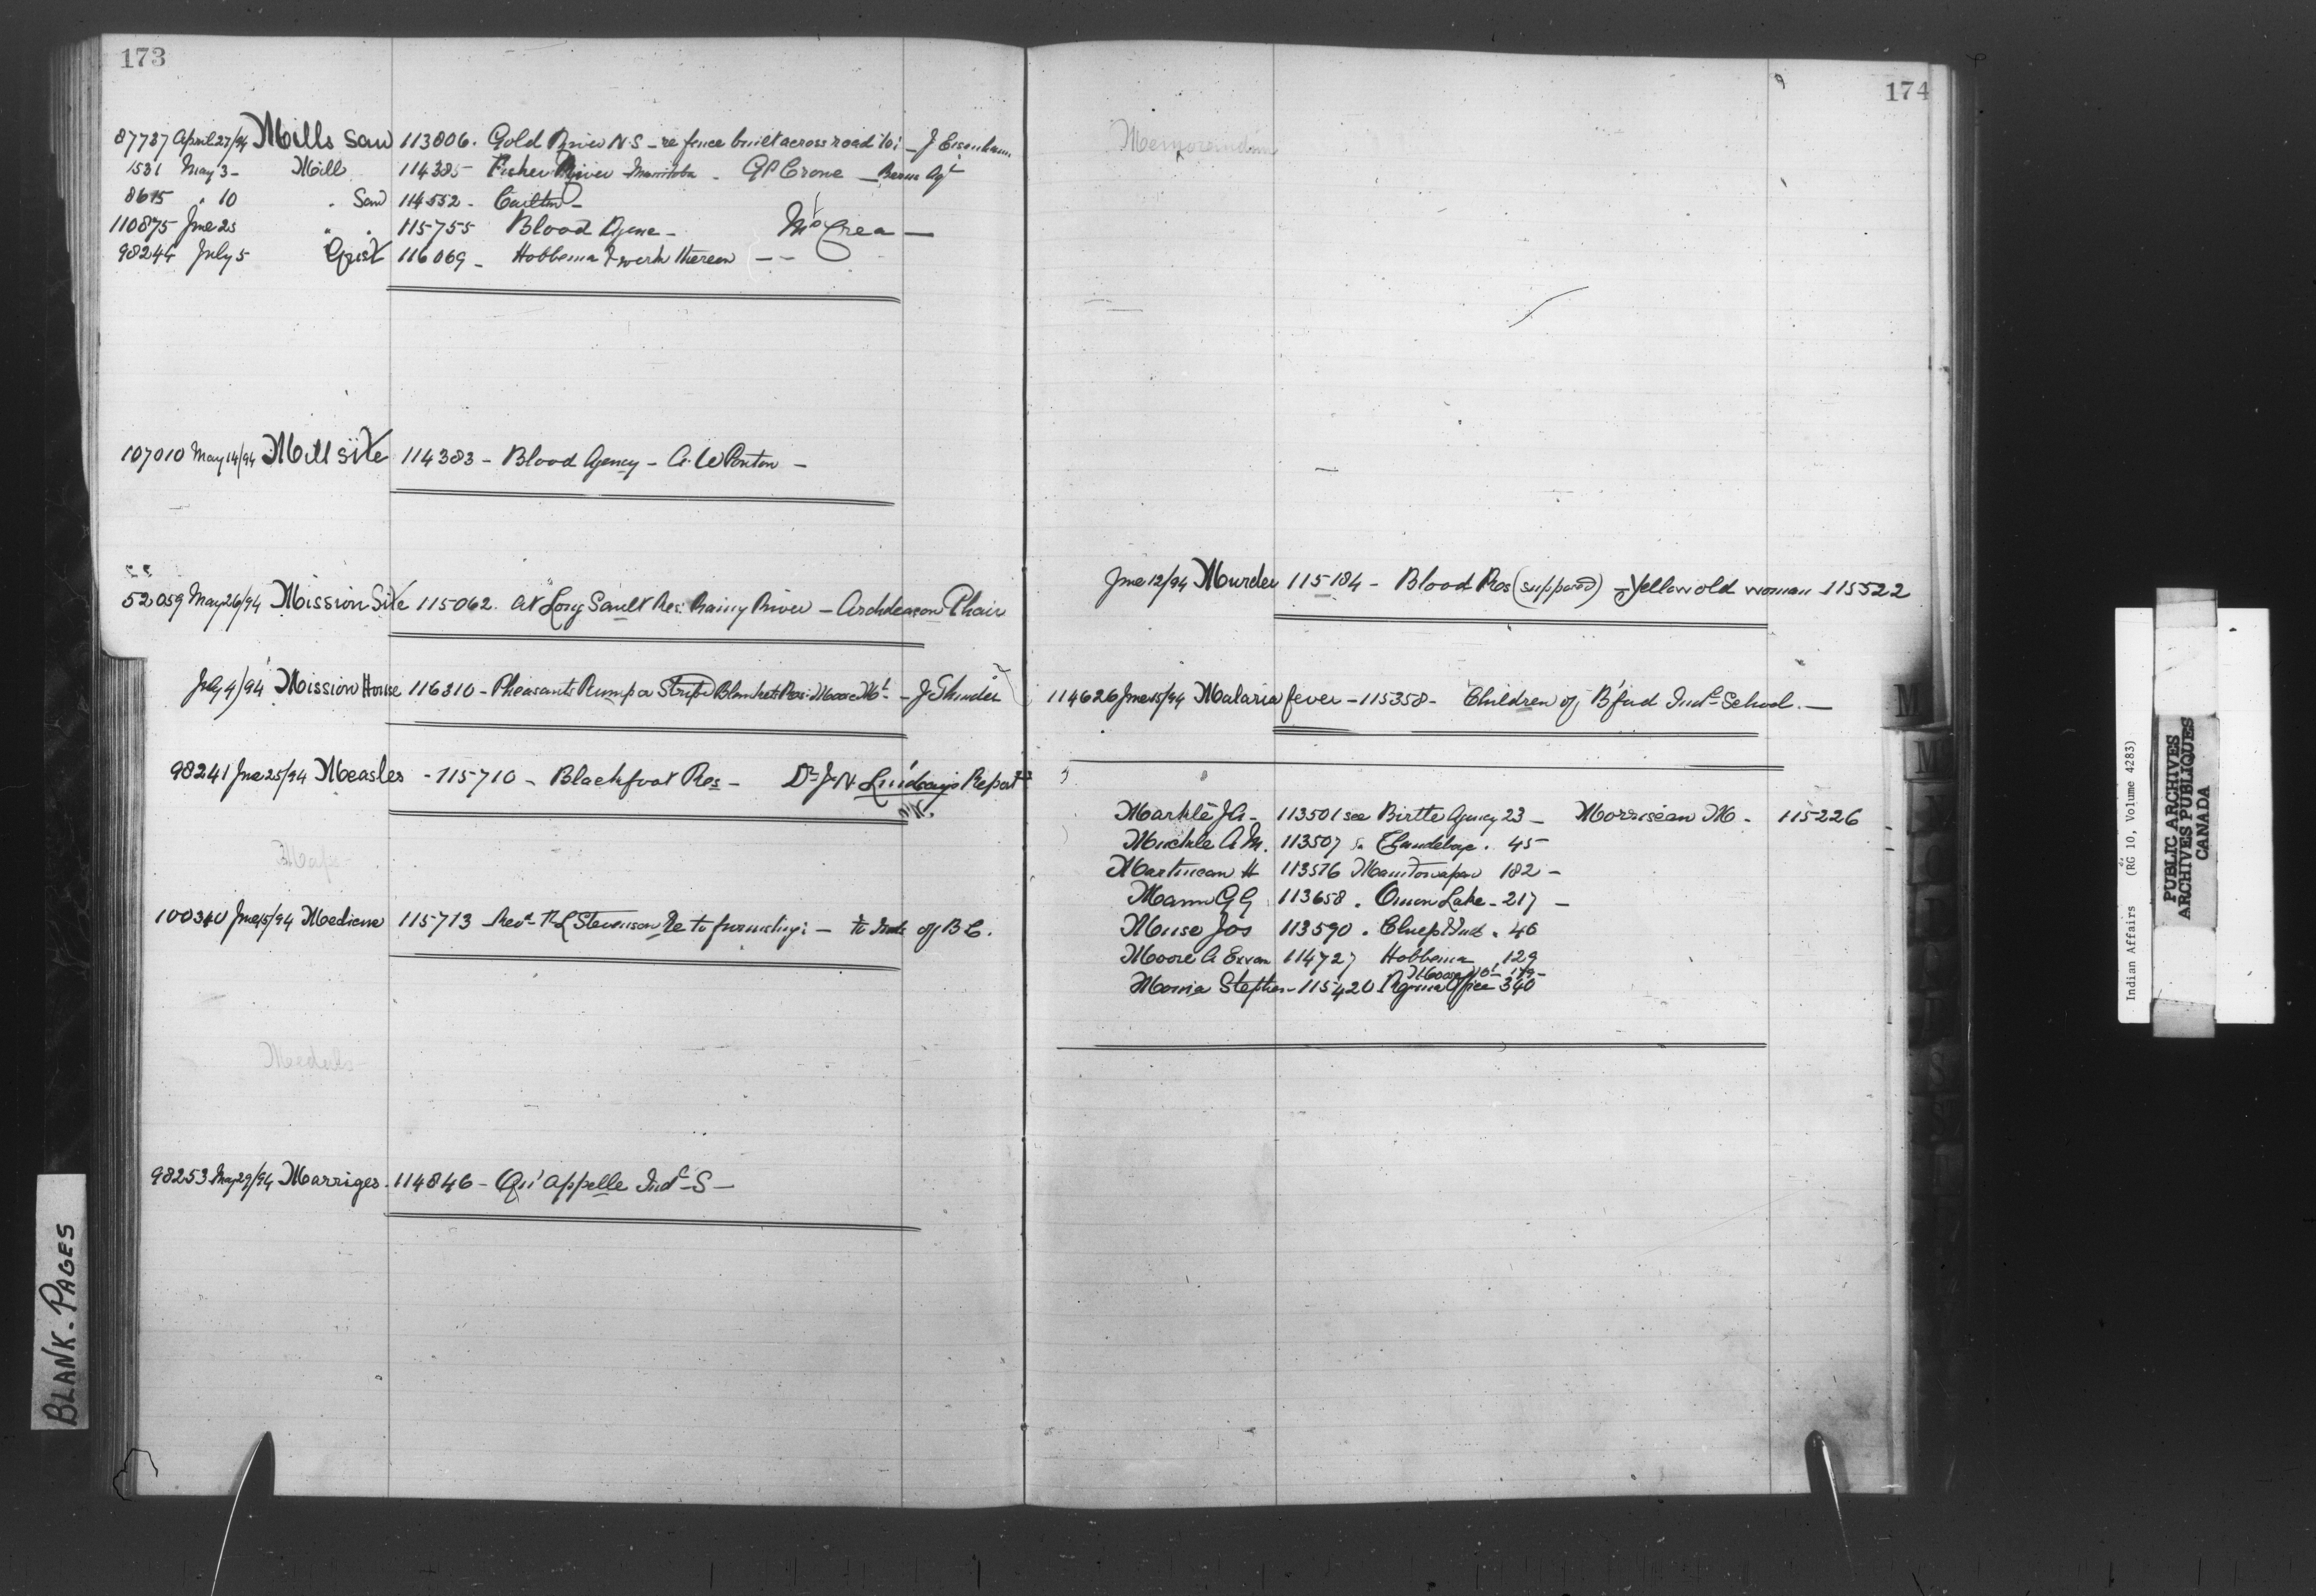 173
87737 April 27/94 Mills Saw 113806. Gold River N.S – re fence built across road to: – J Eisenhaur
1531 May 3 – Mill 114385 Fisher River Manitoba – G P Crone – Berens Agt
8615 " 10 " Saw 114552 – Carlton –
110875 Jne 23 " " 115755 Blood Agnc – McCrea —
98244 July 5 Grist 116069 – Hobbema & work thereon — –
107010 May 14/94 Mill site 114383 – Blood Agency – A. W Ponton –
52059 May 26/94 Mission Site 115062. at Long Sault Res: Rainy River – Archdeacon Phair
July 4/94 Mission House 116310 – Pheasants Rump or Stripe Blankets Res: Moose Mt – J
98241 Jne 25/94 Measles - 115710 – Blackfoot Res – Dr J. N Lindsays Report
Maps
100340 Jne 15/94 Medicine 115713 Revd R L Stevenson Re to furnishing: – to Inds of B C.
Medals
98253 May 29/94 Marriges. 114846 – Qu'appelle Indl S –
174
Memorandum
Jne 12/94 Murder 115184 – Blood Res (supposed) – Yellow old woman 115522
114626 Jne 15/94 Malaria fever – 115358 – Children of B'ford Indl School. —
Markle J A – 113501 see Birtle Agency 23 – Morriseau M – 115226
Muckle A M. 113507 " Clandeboye. 45
Martineau H 113576 Manitowapaw 182 –
Mann G G 113658 . Onion Lake – 217 –
Muise Jos 113590 . 46
Moore A Ewan 114727 Hobbema 129
Moose Mt 179 –
Morria Stephen – 115420 Regina Office 340
M
M
BLANK - PAGES
Indian Affairs (RG 10, Volume 4283)
PUBLIC ARCHIVES
ARCHIVES PUBLIQUES
CANADA